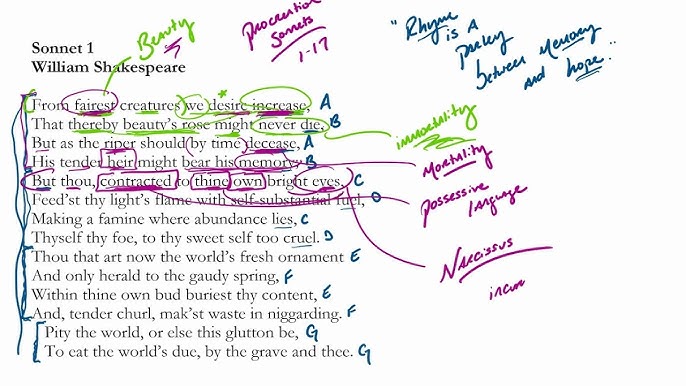 Sonnet 1
William Shakespeare
Beauty
Procreation
Sonnets
1-17
"Rhyme is A
parley
between Memory
and hope."
From fairest creatures we desire increase, A
That thereby beauty's rose might never die, B
But as the riper should by time decease, A
His tender heir might bear his memory: B
But thou, contracted to thine own bright eyes, C
Feed'st thy light's flame with self-substantial fuel, D
Making a famine where abundance lies, C
Thyself thy foe, to thy sweet self too cruel. D
Thou that art now the world's fresh ornament E
And only herald to the gaudy spring, F
Within thine own bud buriest thy content, E
And, tender churl, mak'st waste in niggarding. F
Pity the world, or else this glutton be, G
To eat the world's due, by the grave and thee. G
immortality
Mortality
Possessive
language
Narcissus